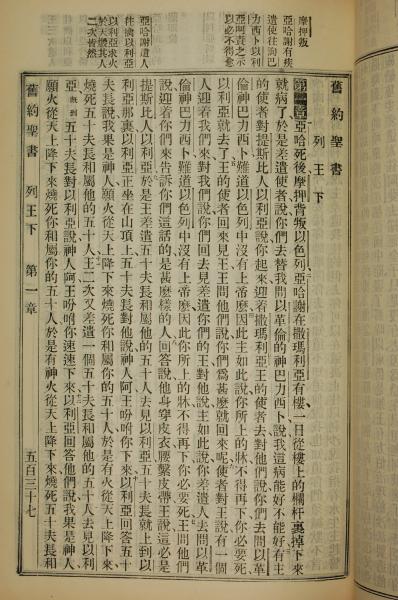 摩押叛
亞哈謝有疾
遣使往問巴
力西卜以利
亞責之示
以必不得愈
亞哈謝遣人
往擒以利亞
以利亞求火
於天燬其人
二次皆然
舊約聖書
列王下
第一章亞哈死後摩押背叛以色列亞哈謝在撒瑪利亞有樓一日從樓上的欄杆裏掉下來、
就病了於是差遣使者說你們去替我問以革倫的神巴力西卜說我這病能好不能好有主
的使者對提斯比人以利亞說你起來迎着撒瑪利亞王的使者去對他們說你們去問以革
倫神巴力西卜難道以色列中沒有上帝麽因此主如此說你所上的牀不得再下你必要死
以利亞就去了王的使者回來見王王問他們說你們爲甚麽就回來呢使者對王說有一個
人迎着我們來對我們說你們回去見差遣你們的王對他說主如此說你差遣人去問以革
倫神巴力西卜難道以色列中沒有上帝麽因此你所上的牀不得再下你必要死王問他們
說迎着你們來告訴你們這話的是甚麽樣的人回答說他身穿皮衣腰繫皮帶王說這必是
提斯比人以利亞於是王差遣五十夫長和屬他的五十人去見以利亞五十夫長就上到以
利亞那裏以利亞正坐在山頂上五十夫長對他說神人阿王吩咐你下來以利亞回答五十
夫長說我果是神人願火從天上降下來燒死你和屬你的五十人於是有火從天上降下來、
燒死五十夫長和屬他的五十人王二次又差遣一個五十夫長和屬他的五十人去見以利
亞既到五十夫長對以利亞說神人阿王吩咐你速速下來以利亞回答他們說我果是神人、
願火從天上降下來燒死你和屬你的五十人於是有神火從天上降下來燒死五十夫長和
舊約聖書 列王下 第一章 五百三十七